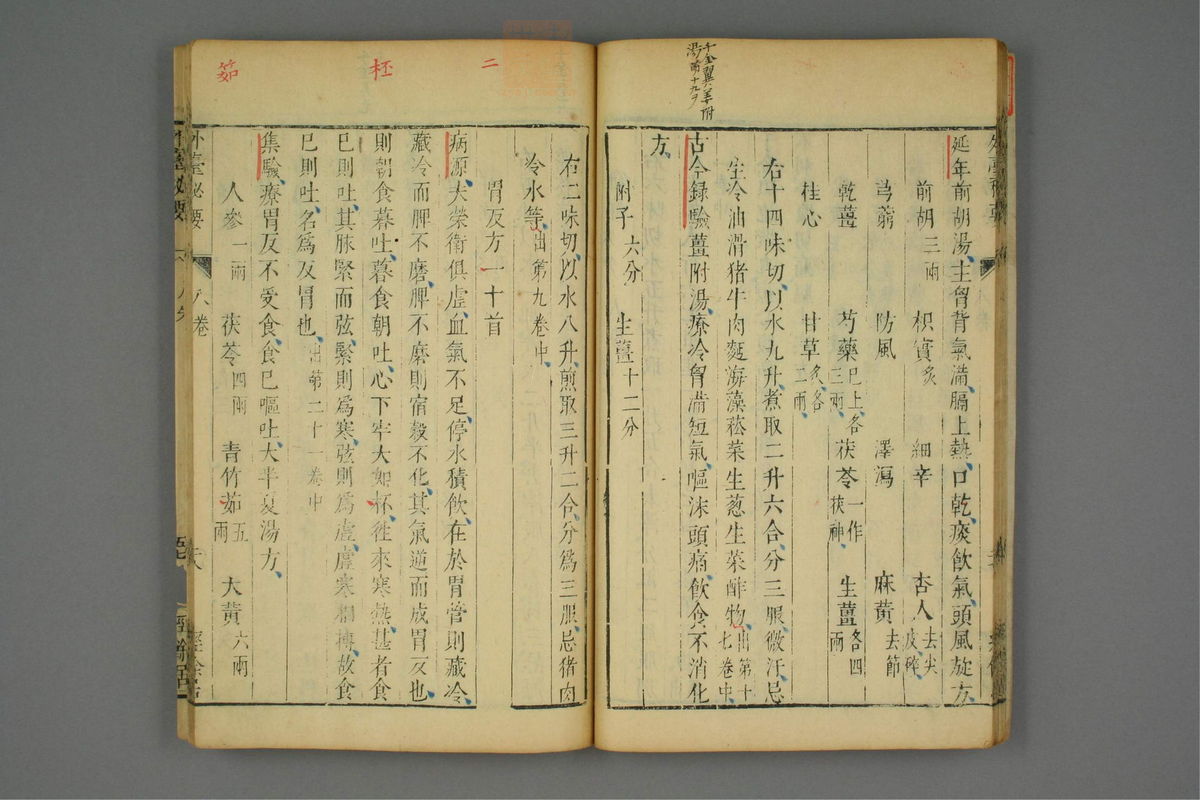 千金翼羊附
湯前十九ヲ
延年前胡湯主胷背氣滿膈上熱口乾痰飲氣頭風旋方
前胡三兩 枳實炙 細辛 杏人去尖皮碎
芎藭 防風 澤瀉 麻黄去節
乾薑 芍藥已上各三兩 茯苓一作茯神 生薑各四兩
桂心 甘草炙各二兩
右十四味切以水九升煮取二升六合分三服微汗忌
生冷油滑猪牛肉麪海藻菘菜生葱生菜酢物出第十七卷中
古今録驗薑附湯療冷胷滿短氣嘔沫頭痛飲食不消化
方
附子六分 生薑十二分
二
柸
茹
右二味切以水八升煎取三升二合分爲三服忌猪肉
冷水等出第九卷中
胃反方一十首
病源夫榮衛俱虚血氣不足停水積飲在於胃管則藏冷
藏冷而脾不磨脾不磨則宿穀不化其氣逆而成胃反也
則朝食暮吐暮食朝吐心下牢大如杯徃來寒熱甚者食
已則吐其脉緊而弦緊則爲寒弦則爲虚虚寒相摶故食
已則吐名爲反胃也出第二十一卷中
集驗療胃反不受食食已嘔吐大半夏湯方
人參一兩 茯苓四兩 青竹茹五兩 大黄六兩
外臺祕要 八卷